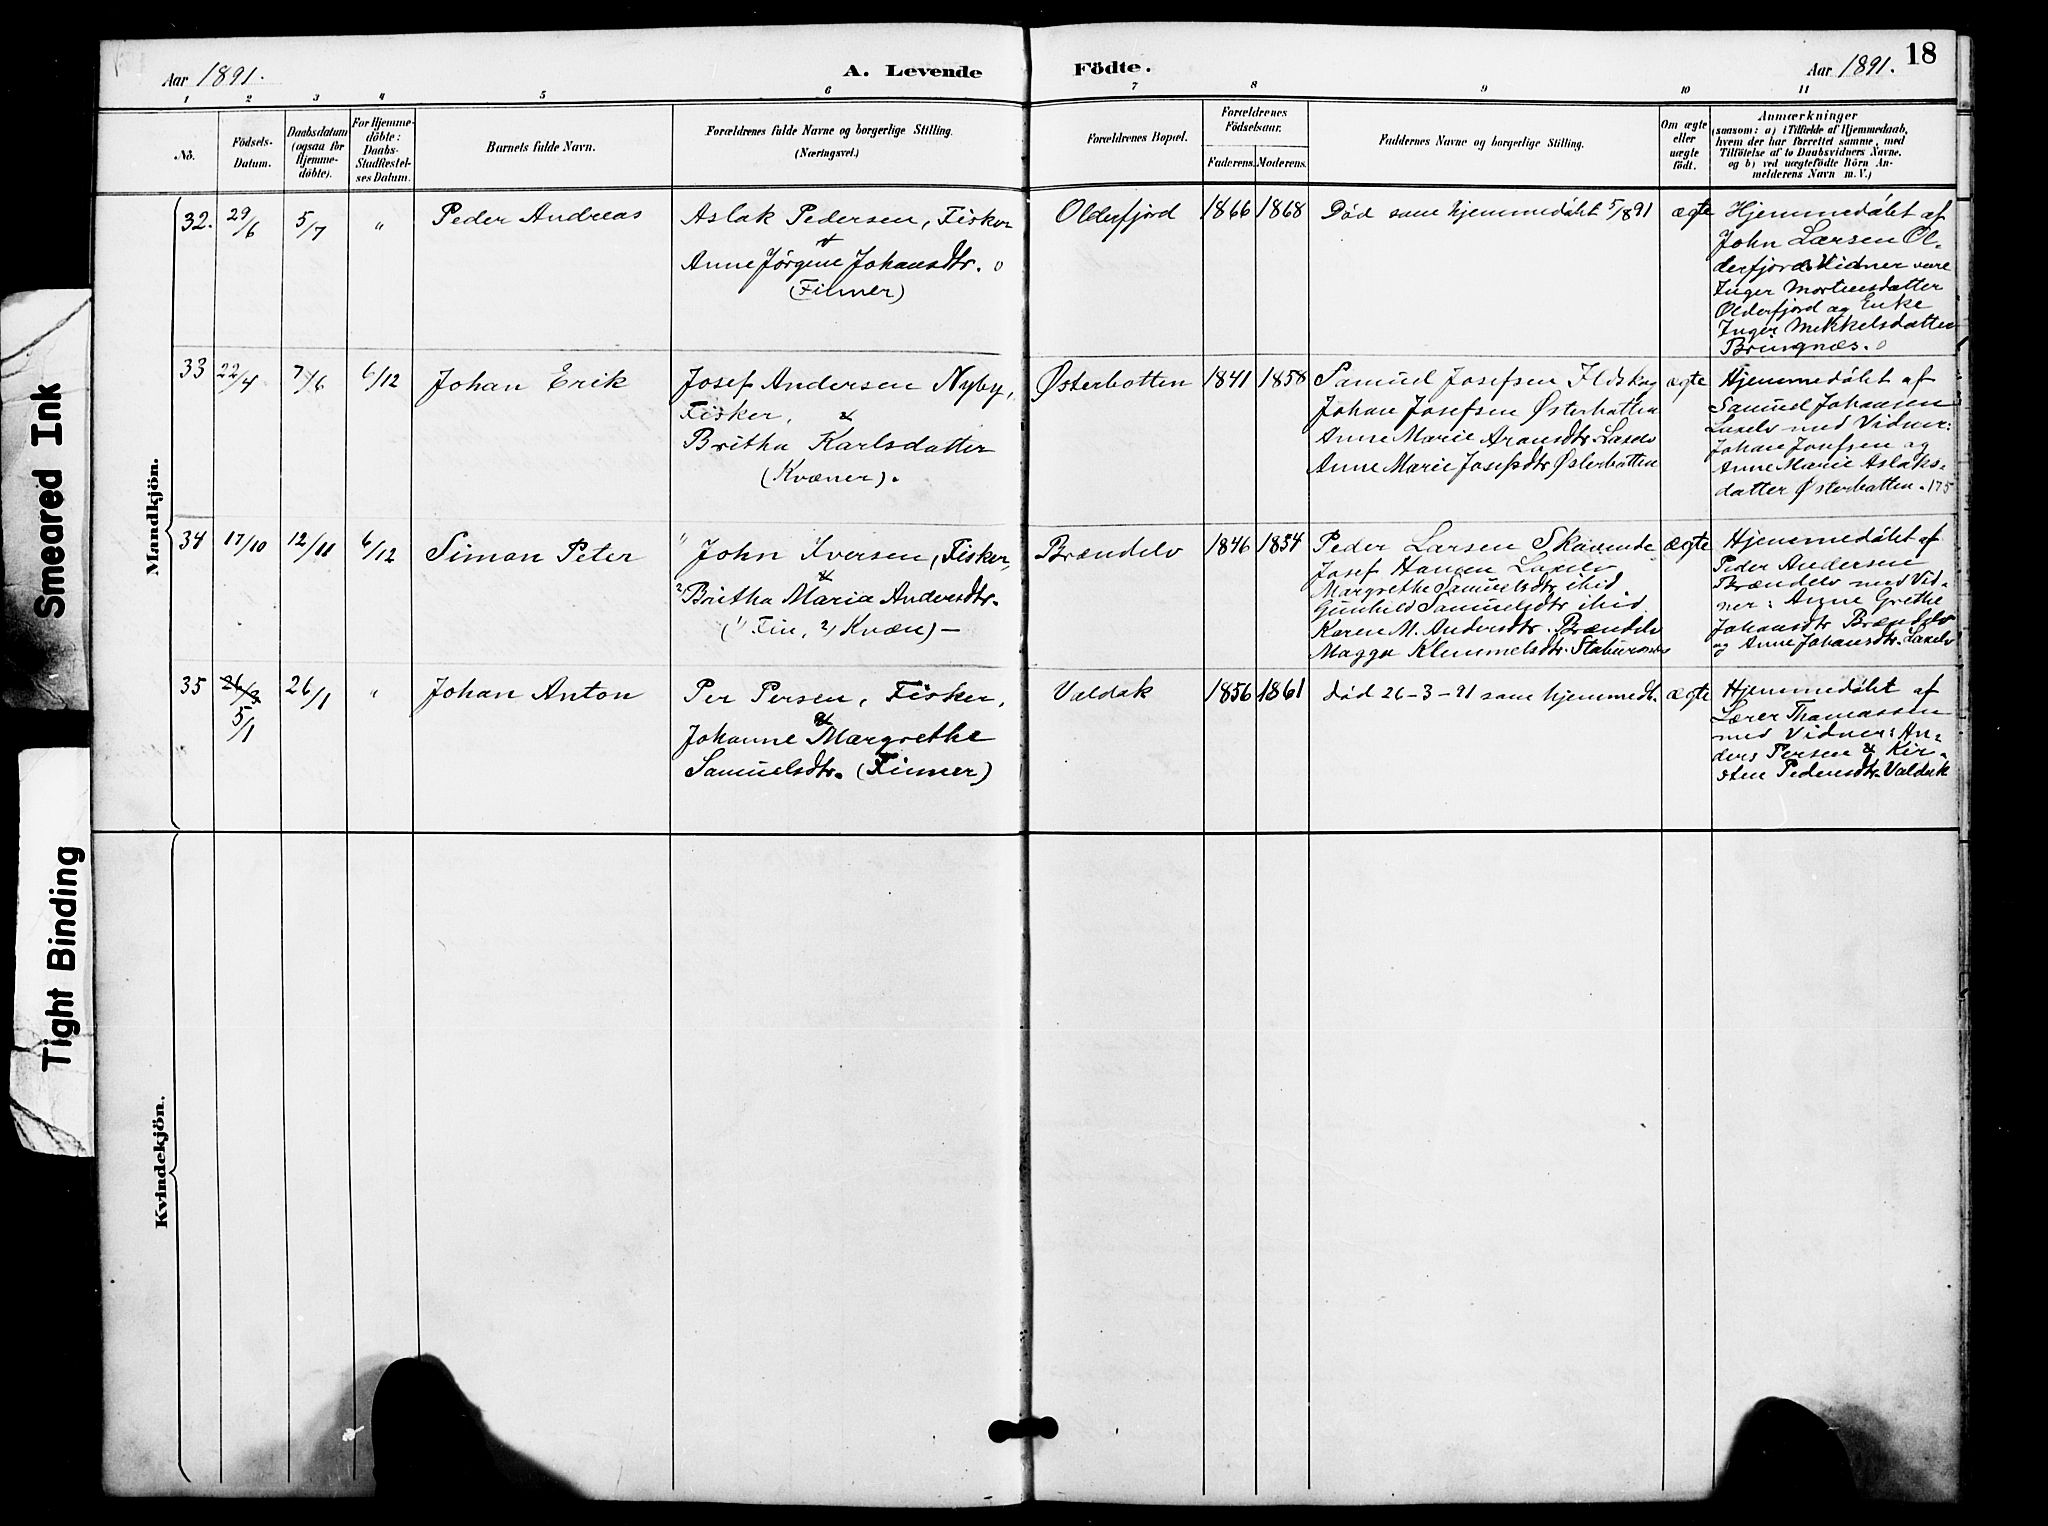 Smeared Ink
Tight Binding
Aar 1891.
A. Levende Födte.
Aar 1891.
18
1 2 3 4 5 6 7 8 9 10 11
No.
Födsels-
Datum.
Daabsdatum
(ogsaa for
Hjemme-
döbte).
For Hjemme-
döbte:
Daabs-
Stadfæstel-
ses Datum.
Barnets fulde Navn.
Forældrenes fulde Navne og borgerlige Stilling.
(Næringsvei.)
Forældrenes Bopæl.
Forældrenes
Födselsaar.
Faderens.
Moderens.
Faddernes Navne og borgerlige Stilling.
Om ægte
eller
uægte
födt.
Anmærkninger
(saasom: a) i Tilfælde af Hjemmedaab,
hvem der har forrettet samme, med
Tilföielse af to Daabsvidners Navne.
og b) ved uægtefödte Börn An-
melderens Navn m. V.)
Mandkjön.
32. 29/6 5/7 " Peder Andreas
Aslak Pedersen, Fisker
&
Anne Jørgine Johansdtr.
(Finner)
Olderfjord 1866 1868 Død som hjemmedøbt 5/8 91 ægte
Hjemmedøbt af
John Larsen Ol-
derfjord. Vidner vare
Inger Mortensdatter
Olderfjord og Enke
Inger Mikkelsdatter
Bringnæs.
33 22/4 7/6 6/12 Johan Erik
Josef Andersen Nyby,
Fisker, &
Britha Karlsdatter
(Kvæner).
Østerbotten 1841 1858
Samuel Josefsen Ildskog
Johan Josefsen Østerbotten
Anne Marie Aronsdtr. Laxelv
Anne Marie Josefsdtr Østerbotten
ægte
Hjemmedøbt af
Samuel Johansen
Laxelv med Vidner:
Johan Josefsen og
Anne Marie Aslaks-
datter Østerbotten. 175
34 17/10 12/11 6/12 Simon Peter
1) John Iversen, Fisker,
&
2) Britha Maria Andersdtr.
(1) Fin, 2) Kvæn) –
Brændelv 1846 1854
Peder Larsen
Josef Hansen Laxelv
Margrethe Samuelsdtr ibid
Gunhild Samuelsdtr ibid.
Karen M. Andersdtr. Brændelv
Magga Klemmetsdtr.
ægte
Hjemmedøbt af
Peder Andersen
Brændelv med Vid-
ner: Anne Grethe
Johansdtr Brændelv
og Anne Johansdtr. Laxelv
35 26/3 5/1 26/1 " Johan Anton
Per Persen, Fisker,
&
Johanne Margrethe
Samuelsdtr. (Finner)
Valdak 1856 1861 død 26-3-91 som hjemmedt. ægte
Hjemmedøbt af
Lærer Thomassen
med Vidner: An-
ders Persen & Kir-
sten Pedersdtr. Valdak
Kvindekjön.